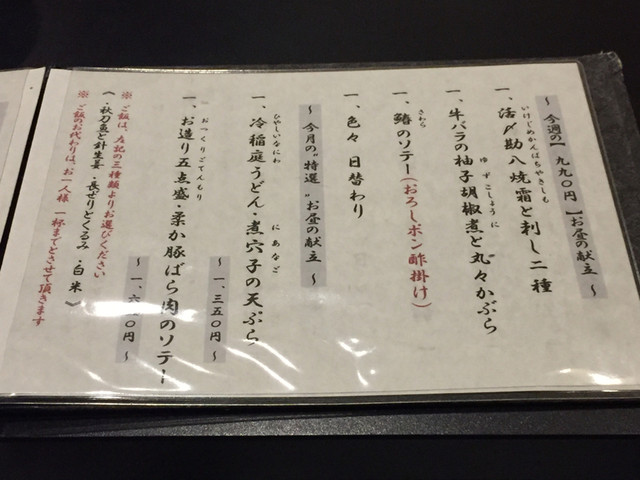 ～ 今週の【 九九〇円 】お昼の献立 ～
いけじめかんぱちやきしも
一、活〆勘八焼霜と刺し二種
ゆずこしょうに
一、牛バラの柚子胡椒煮と丸々かぶら
さわら
一、鰆のソテー（おろしポン酢掛け）
一、色々 日替わり
～ 今月の“特選 „お昼の献立 ～
ひやしいなにわ にあなご
一、冷稲庭うどん・煮穴子の天ぷら
～ 一、三五〇円 ～
おつくりごてんもり
一、お造り五点盛・柔か豚ばら肉のソテー
～ 一、六 〇円 ～
※ ご飯は、左記の三種類よりお選びください
《 ・秋刀魚と針生姜 ・長ぜりとくるみ ・白米 》
※ ご飯のお代わりは、お一人様 一杯までとさせて頂きます